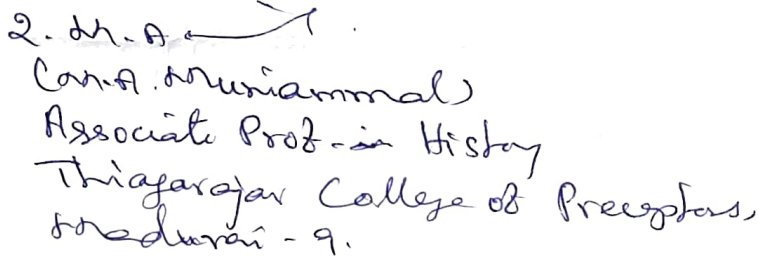 2. M. A
(M.A. Muniammal)
Associate Prof. in History
Thiagarajar College of Preceptors,
Madurai - 9.